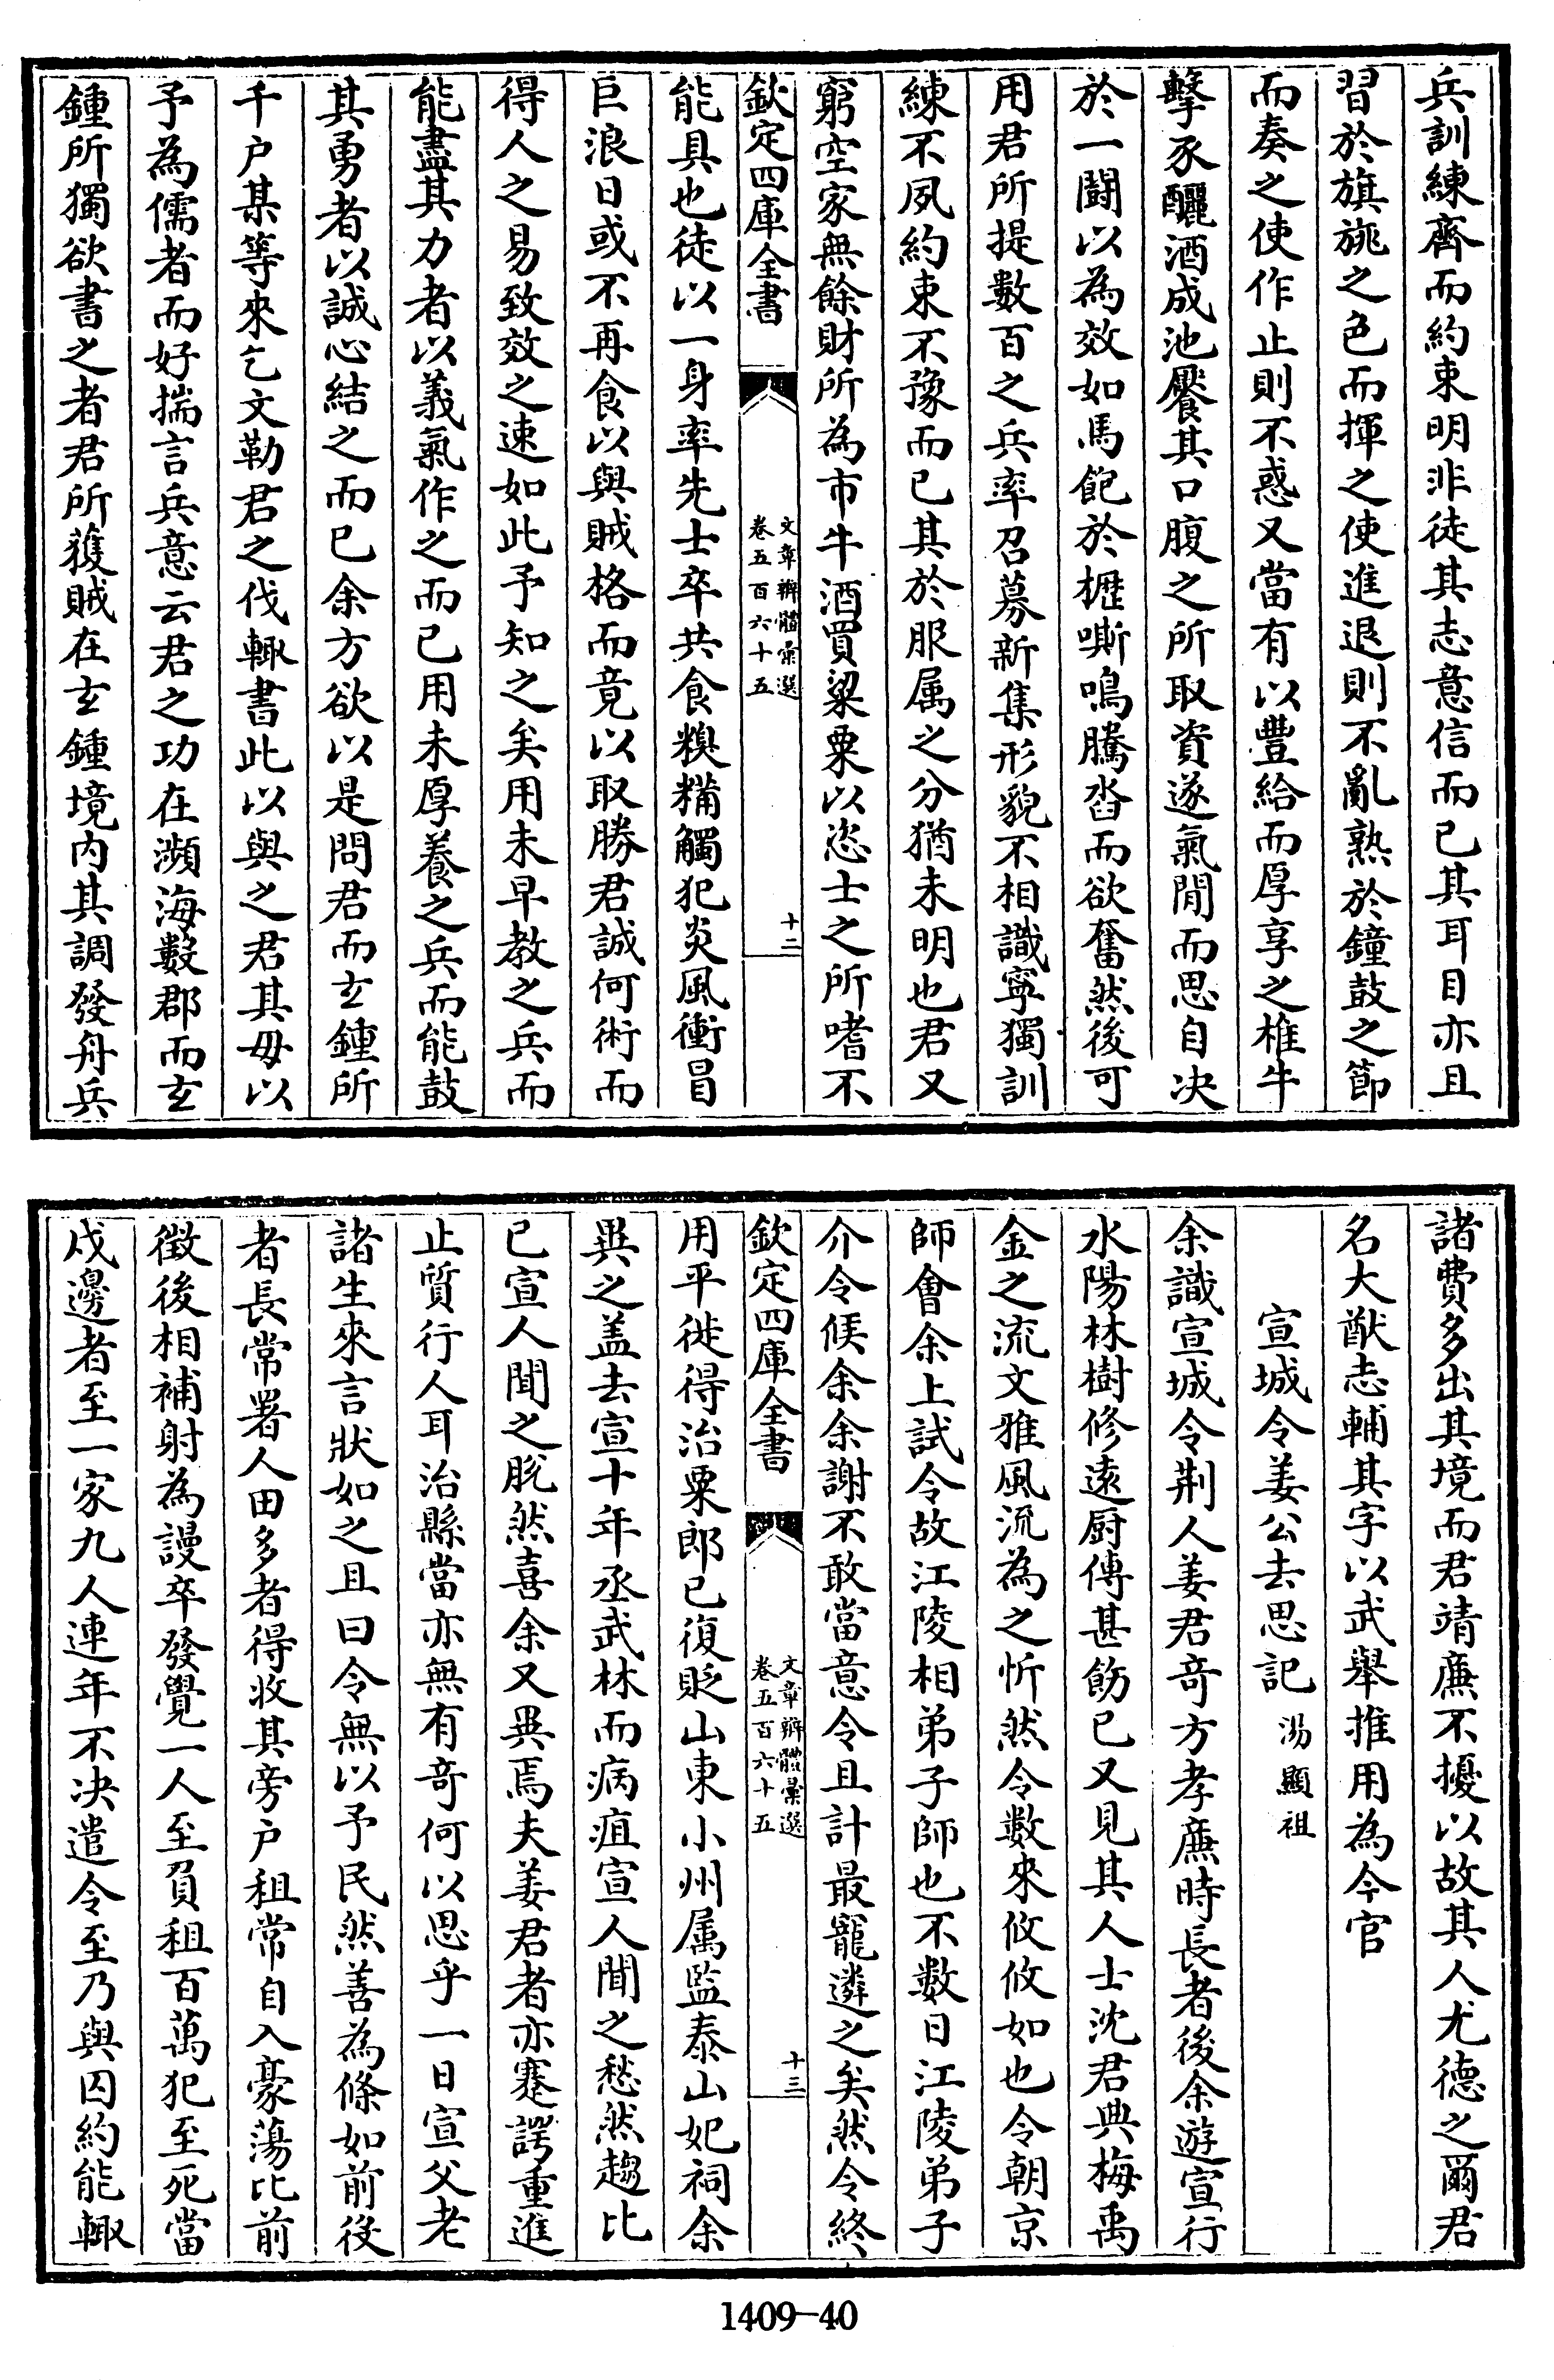 兵訓練齊而約束明非徒其志意信而已其耳目亦且
習於旗旐之色而揮之使進退則不亂熟於鐘鼓之節
而奏之使作止則不惑又當有以豐給而厚享之椎牛
擊豕釃酒成池饜其口腹之所取資遂氣閒而思自决
於一鬬以為效如馬飽於櫪嘶鳴騰沓而欲奮然後可
用君所提數百之兵率召募新集形貌不相識寧獨訓
練不夙約束不豫而已其於服属之分猶未明也君又
窮空家無餘財所為市牛酒買粱粟以恣士之所嗜不
欽定四庫全書
文章辨體彙選
卷五百六十五
十二
能具也徒以一身率先士卒共食糗糒觸犯炎風衝冒
巨浪日或不再食以與賊格而竟以取勝君誠何術而
得人之易致效之速如此予知之矣用未早教之兵而
能盡其力者以義氣作之而已用未厚養之兵而能鼓
其勇者以誠心結之而已余方欲以是問君而玄鍾所
千户某等來乞文勒君之伐輙書此以與之君其毋以
予為儒者而好揣言兵意云君之功在瀕海數郡而玄
鍾所獨欲書之者君所獲賊在玄鍾境内其調發舟兵
諸費多出其境而君靖廉不擾以故其人尤德之爾君
名大猷志輔其字以武舉推用為今官
宣城令姜公去思記 湯顯祖
余識宣城令荆人姜君竒方孝廉時長者後余遊宣行
水陽林樹修遠厨傳甚飭已又見其人士沈君典梅禹
金之流文雅風流為之忻然令數來攸攸如也令朝京
師會余上試令故江陵相弟子師也不數日江陵弟子
介令候余余謝不敢當意令且計最寵遴之矣然令終
欽定四庫全書
文章辨體彙選
卷五百六十五
十三
用平徙得治粟郎已復貶山東小州属監泰山妃祠余
異之盖去宣十年丞武林而病疽宣人聞之愁然趨比
已宣人聞之脱然喜余又異焉夫姜君者亦蹇諤重進
止質行人耳治縣當亦無有竒何以思乎一日宣父老
諸生來言狀如之且曰令無以予民然善為條如前後
者長常署人田多者得收其旁户租常自入豪蕩比前
徵後相補射為謾卒發覺一人至負租百萬犯至死當
戍邊者至一家九人連年不决遣令至乃與囚約能輙
1409-40